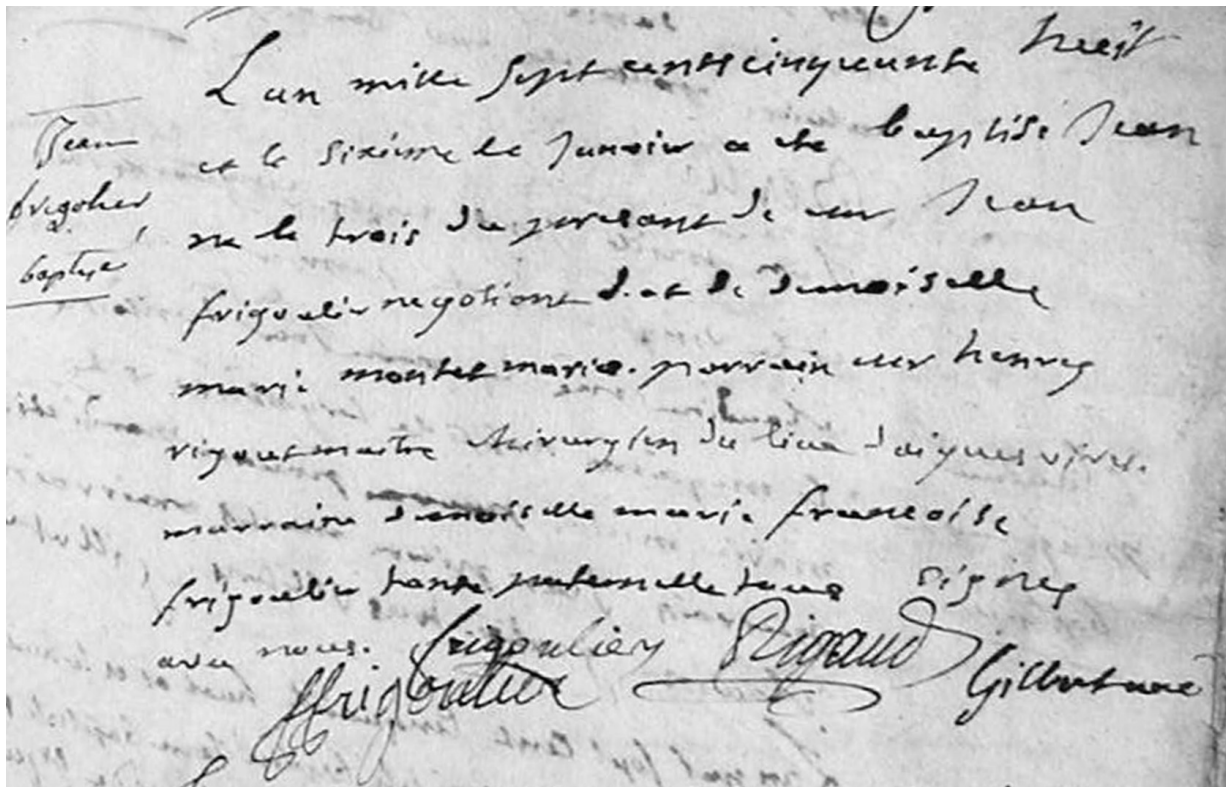 L'an mille sept cents cinquante huit
Jean
frigolier
baptisé
et le sixieme de Janvier a ete baptisé Jean
ne le trois du presant de sieur Jean
frigoulier negotiant d. et de demoiselle
marie montet maries. parrain sieur henry
rigout maitre chirurgien du lieu d'aiguesvives.
marraine demoiselle marie francoise
frigoulier tante paternelle tous signes
avec nous. frigoulier Rigaud
ffrigoulier Gilbert curé